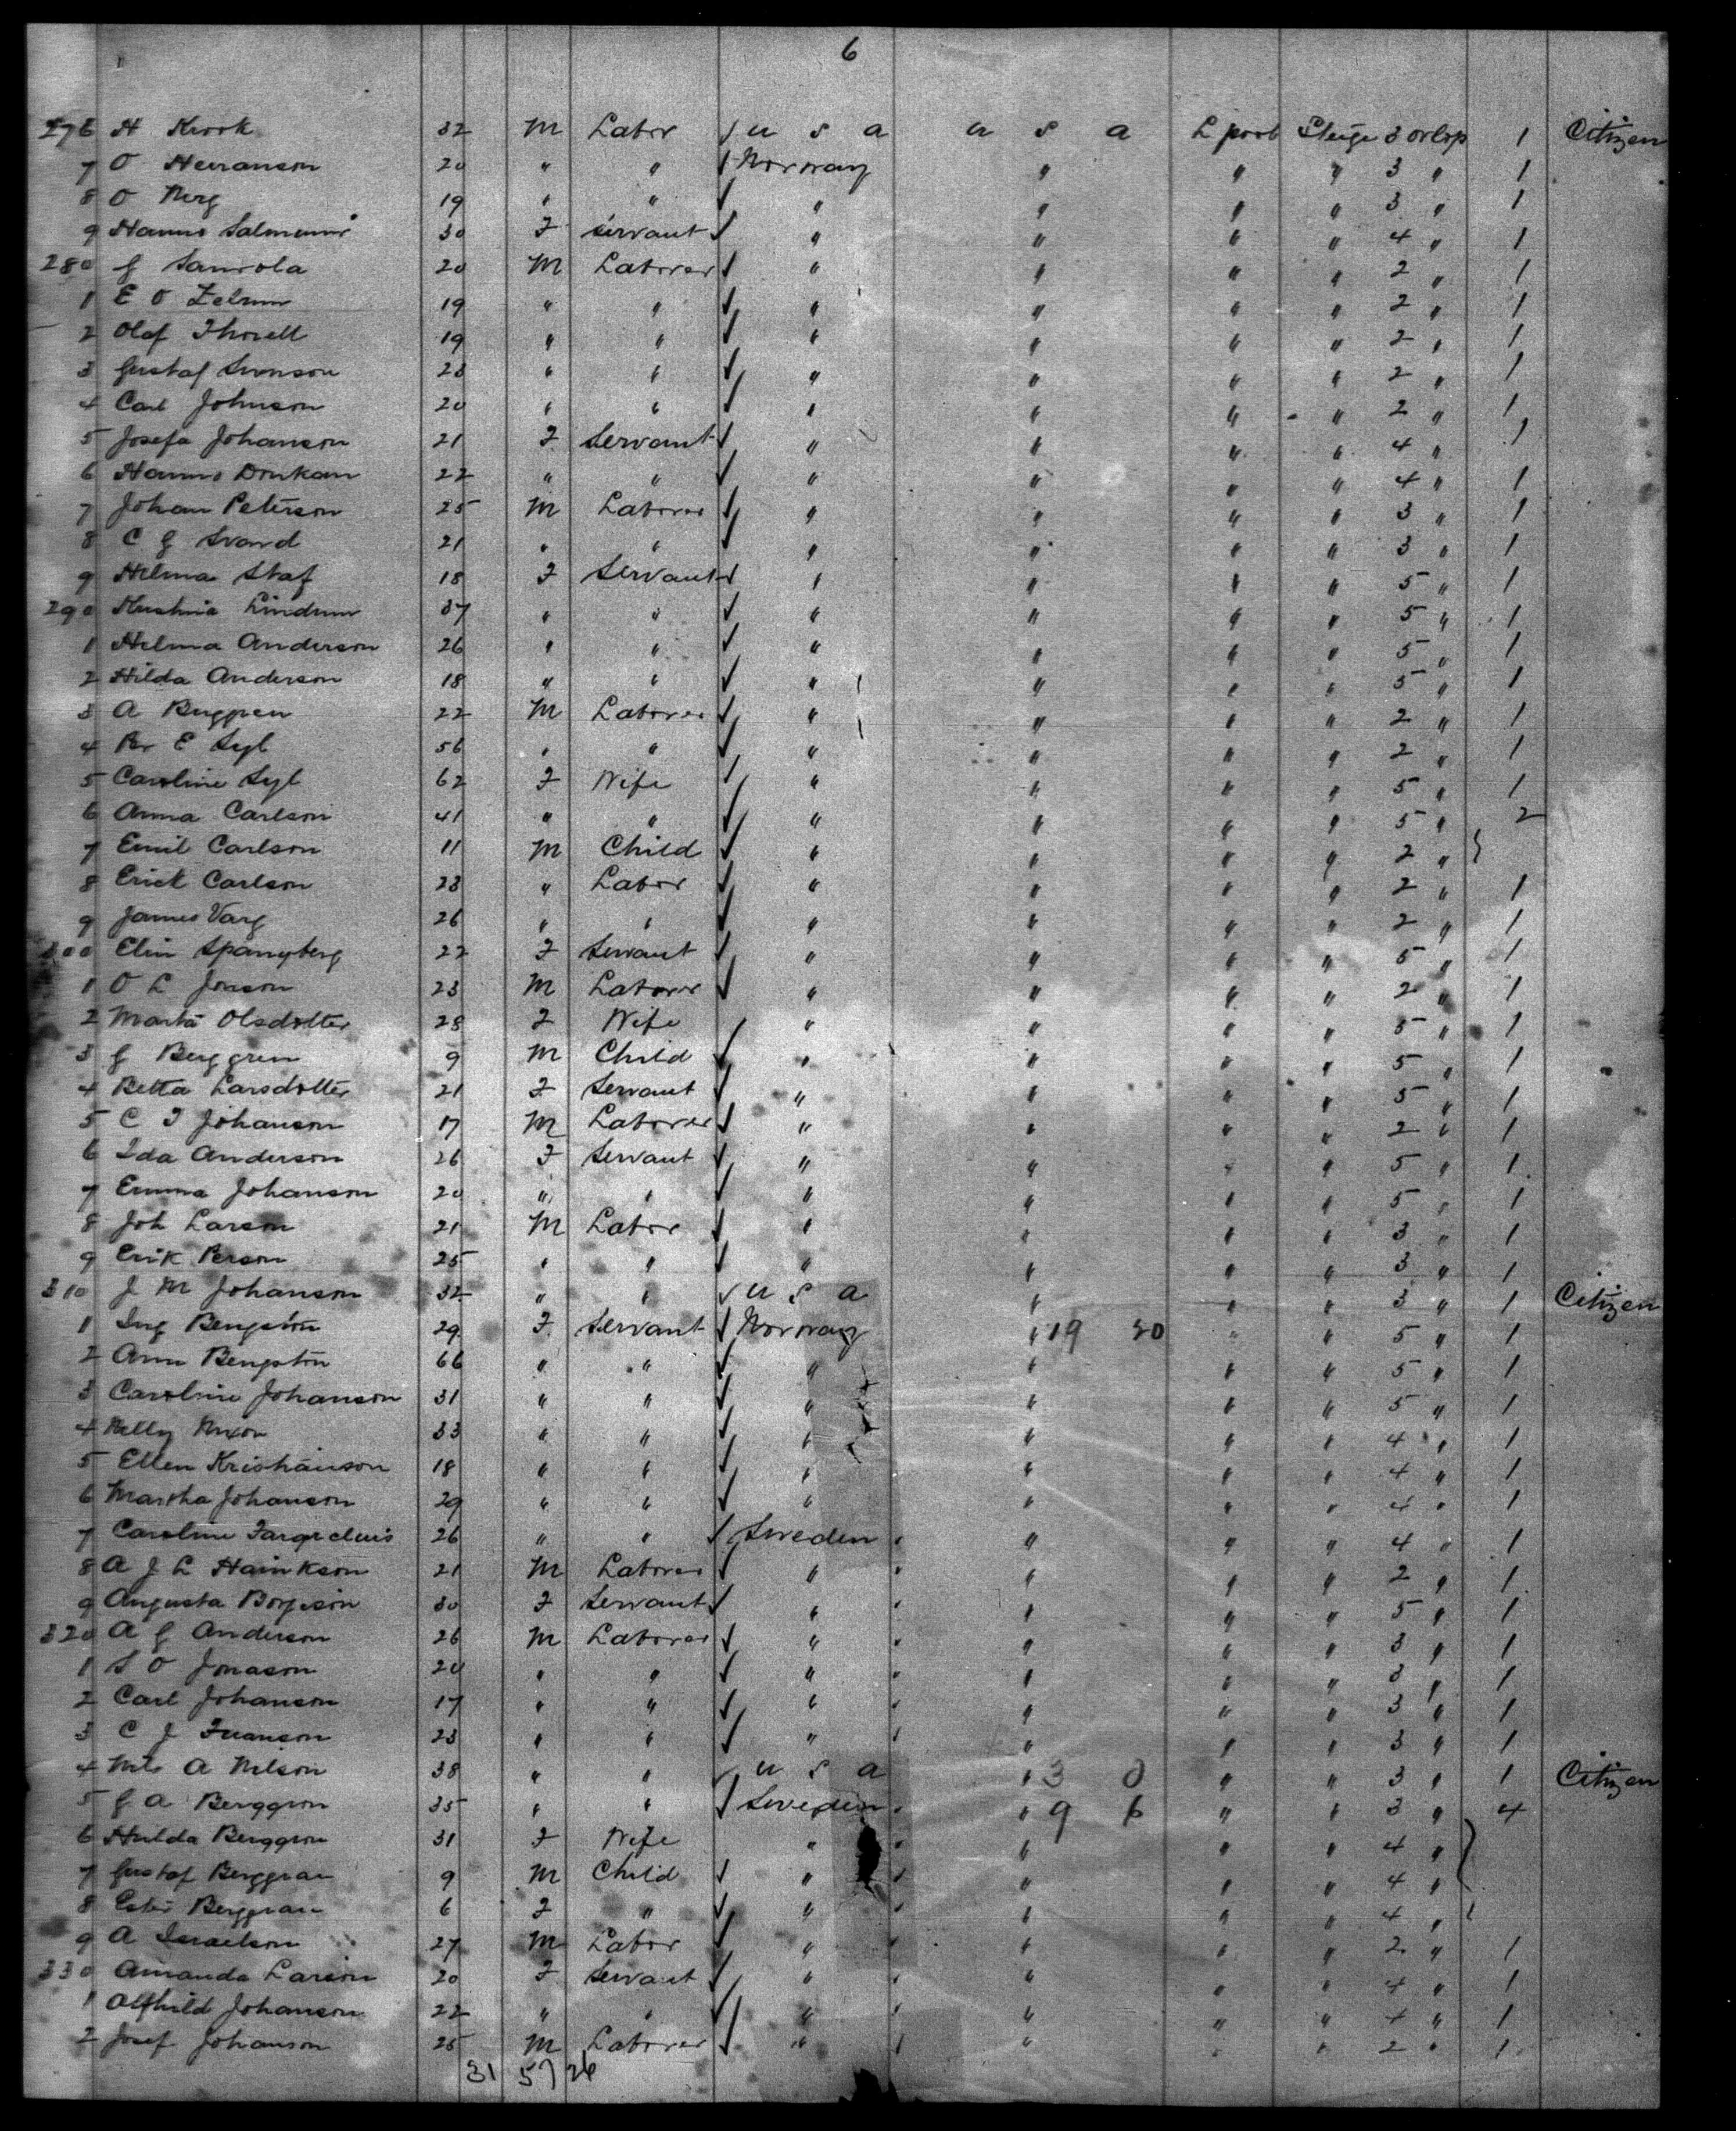 6
276 H Krook 32 M Labor √ U S A U S A L pool Steige 3 orlop 1 Citizen
7 O Herranson 20 " " √ Norway " " " 3 " 1
8 O Berg 19 " " √ " " " " 3 " 1
9 Hanna 30 F servant √ " " " " 4 " 1
280 J 20 M Laborer √ " " " " 2 " 1
1 E O 19 " " √ " " " " 2 " 1
2 Olof Thorell 19 " " √ " " " " 2 " 1
3 Gustaf Svenson 23 " " √ " " " " 2 " 1
4 Carl Johnson 20 " " √ " " " " 2 " 1
5 Josefa Johanson 21 F Servant √ " " " " 4 " 1
6 Hanna 22 " " √ " " " " 4 " 1
7 Johan Peterson 25 M Laborer √ " " " " 3 " 1
8 C G Svard 21 " " √ " " " " 3 " 1
9 Helma Staf 18 F Servant √ " " " " 5 " 1
290 37 " " √ " " " " 5 " 1
1 Helma Anderson 26 " " √ " " " " 5 " 1
2 Hilda Anderson 18 " " √ " " " " 5 " 1
3 A 22 M Laborer √ " " " " 2 " 1
4 Per E Syl 56 " " √ " " " " 2 " 1
5 Caroline Syl 62 F Wife √ " " " " 5 " 1
6 Anna Carlson 41 " " √ " " " " 5 " 2
7 Emil Carlson 11 M Child √ " " " " 2 "
8 Erick Carlson 23 " Labor √ " " " " 2 " 1
9 James Varg 26 " " √ " " " " 2 " 1
300 Elin Spangberg 22 F Servant √ " " " " 5 " 1
1 O L Jonson 23 M Laborer √ " " " " 2 " 1
2 Marta Olsdotter 28 F Wife " " " " 5 " 1
3 G Berggren 9 M Child √ " " " " 5 " 1
4 Betta Larsdotter 21 F Servant √ " " " " 5 " 1
5 C J Johanson 17 M Laborer √ " " " " 2 " 1
6 Ida Anderson 26 F Servant √ " " " " 5 " 1
7 Emma Johanson 20 " " √ " " " " 5 " 1
8 Joh Larson 21 M Labor √ " " " " 3 " 1
9 Erik Person 25 " " √ " " " " 3 " 1
310 J M Johanson 32 " " √ U S A " " " 3 " 1 Citizen
1 Ing Bengston 29 F Servant √ Norway " 19 " " 5 " 1
2 Ann Bengston 66 " " √ " " " " 5 " 1
3 Caroline Johanson 31 " " √ " " " " 5 " 1
4 Nelly 33 " " √ " " " " 4 " 1
5 Ellen Kristianson 18 " " √ " " " " 4 " 1
6 Martha Johanson 29 " " √ " " " " 4 " 1
7 Caroline 26 " " √ Sweden " " " 4 " 1
8 A J L Hainkson 21 M Laborer √ " " " " 2 " 1
9 Augusta 30 F Servant √ " " " " 5 " 1
320 A G Anderson 26 M Laborer √ " " " " 3 " 1
1 S O Jonason 20 " " √ " " " " 3 " 1
2 Carl Johanson 17 " " √ " " " " 3 " 1
3 C J 23 " " √ " " " " 3 " 1
4 Nils A Nilson 38 " " √ U S A " 3 0 " " 3 " 1 Citizen
5 G A Berggron 35 " " √ Sweden " 9 6 " " 3 " 4
6 Hulda Berggron 31 F Wife " " " " 4 "
7 Gustof Berggran 9 M Child √ " " " " 4 "
8 Ester Berggran 6 F " √ " " " " 4 "
9 A Israelson 27 M Labor √ " " " " 2 " 1
330 Amanda Larson 20 F Servant √ " " " " 4 " 1
1 Alfhild Johanson 22 " " √ " " " " 4 " 1
2 Josef Johanson 25 M Laborer √ " " " " 2 " 1
31 57 26